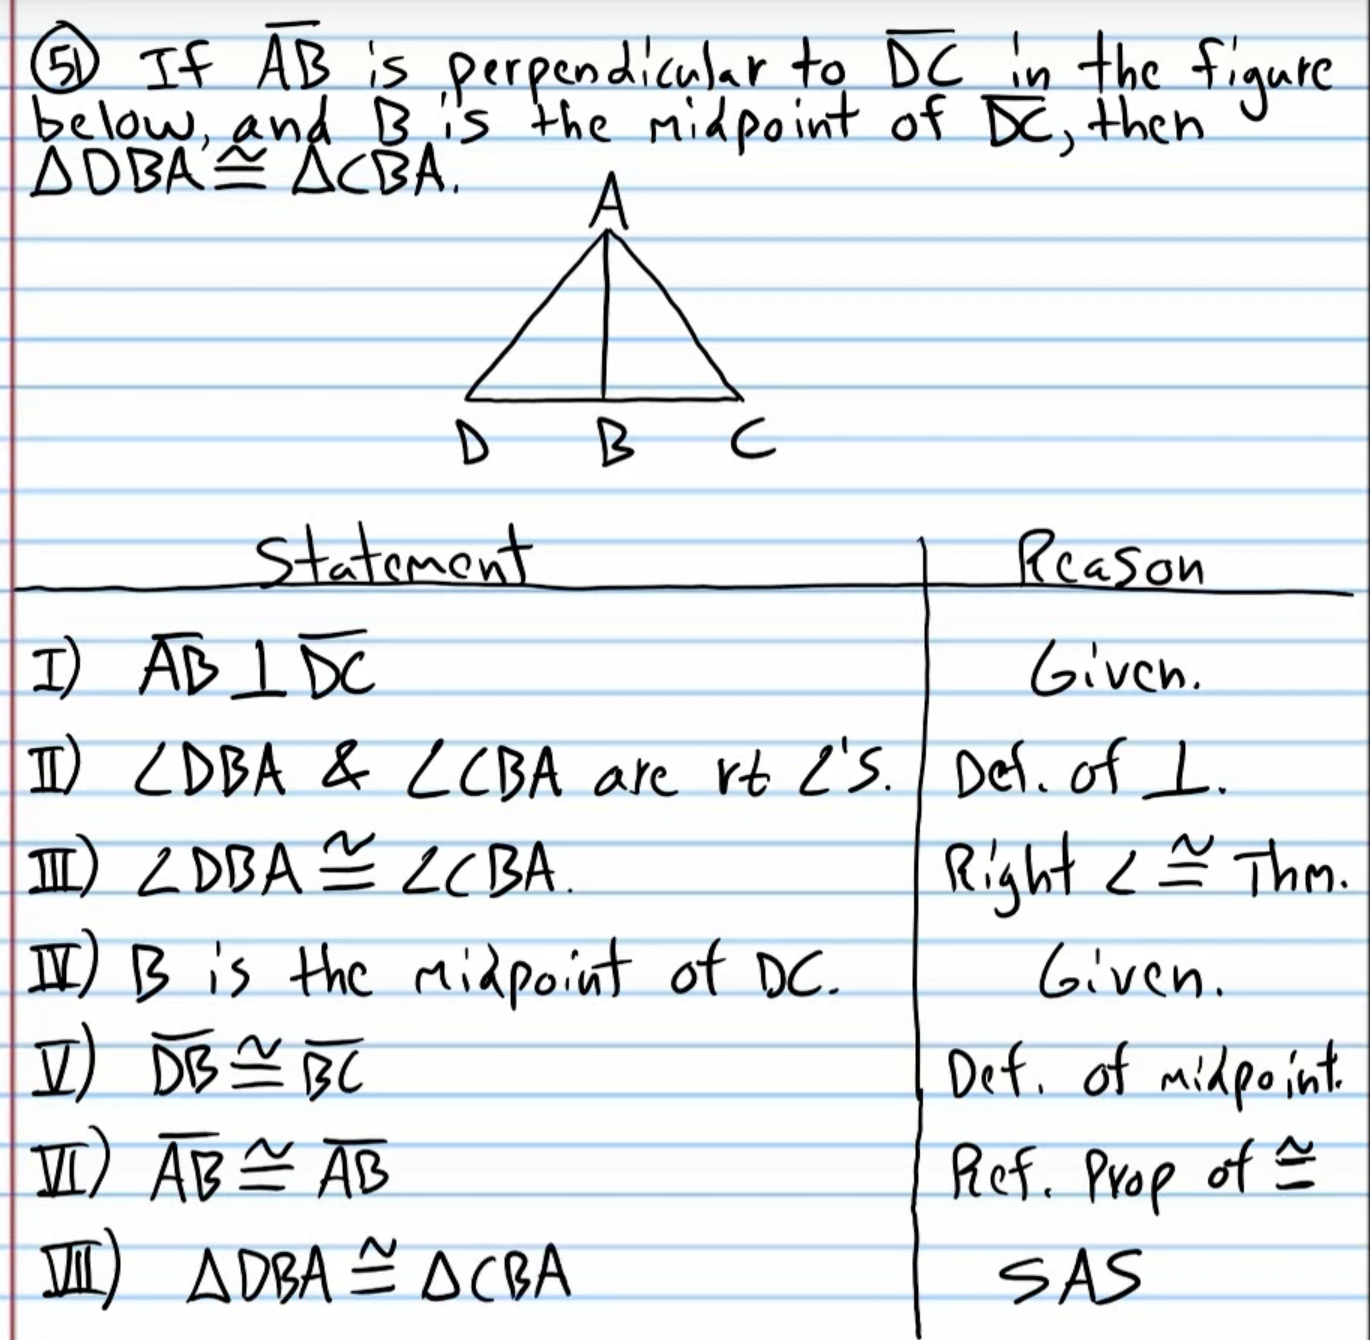 51) If A̅B̅ is perpendicular to D̅C̅ in the figure
below, and B is the midpoint of D̅C̅, then
△DBA ≅ △CBA.
A
D B C
Statement Reason
I) A̅B̅ ⊥ D̅C̅ Given.
II) ∠DBA & ∠CBA are rt ∠'s. Def. of ⊥.
III) ∠DBA ≅ ∠CBA. Right ∠ ≅ Thm.
IV) B is the midpoint of DC. Given.
V) D̅B̅ ≅ B̅C̅ Def. of midpoint.
VI) A̅B̅ ≅ A̅B̅ Ref. Prop of ≅
VII) △DBA ≅ △CBA SAS